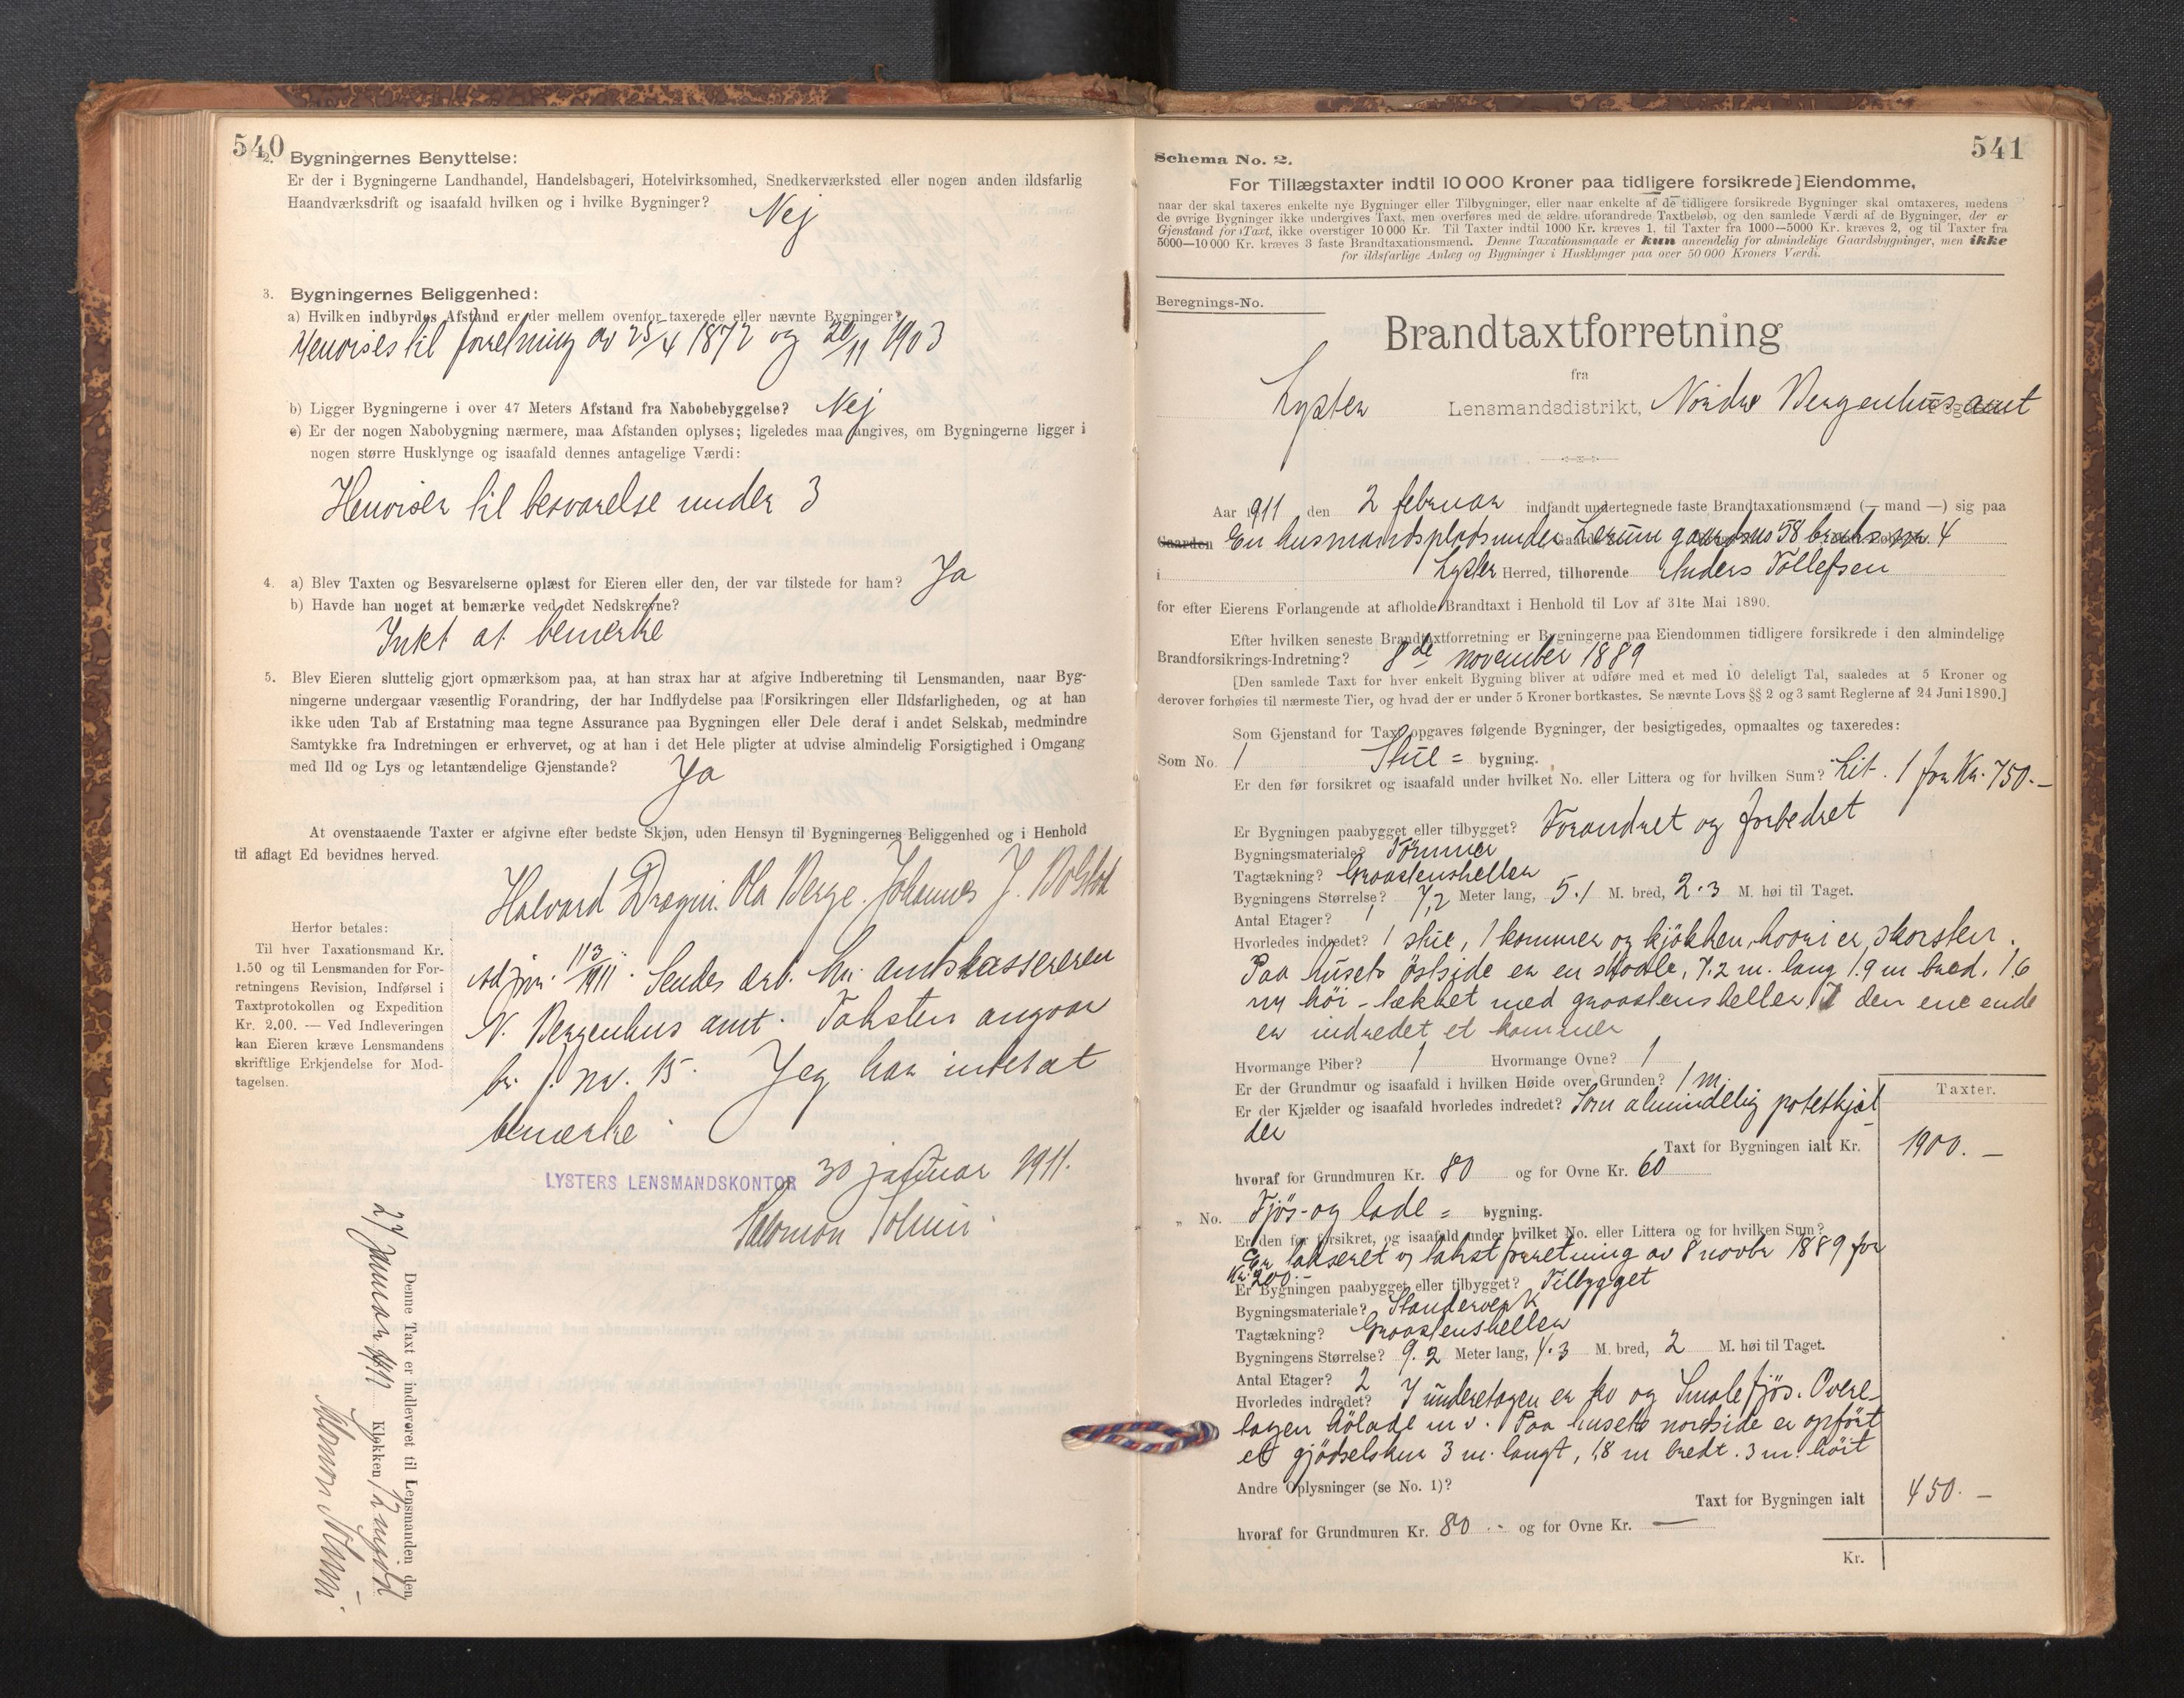 540
2. Bygningernes Benyttelse:
Er der i Bygningerne Landhandel, Handelsbageri, Hotelvirksomhed, Snedkerværksted eller nogen anden ildsfarlig
Haandværksdrift og isaafald hvilken og i hvilke Bygninger? Nej
3. Bygningernes Beliggenhed:
a) Hvilken indbyrdes Afstand er der mellem ovenfor taxerede eller nævnte Bygninger?
Henvises til forretning av 25/4 1872 og 20/11 1903
b) Ligger Bygningerne i over 47 Meters Afstand fra Nabobebyggelse? Nej
c) Er der nogen Nabobygning nærmere, maa Afstanden oplyses; ligeledes maa angives, om Bygningerne ligger i
nogen større Husklynge og isaafald dennes antagelige Værdi:
Henviser til besvarelse under 3
4. a) Blev Taxten og Besvarelserne oplæst for Eieren eller den, der var tilstede for ham? Ja
b) Havde han noget at bemærke ved det Nedskrevne?
Intet at bemerke
5. Blev Eieren sluttelig gjort opmærksom paa, at han strax har at afgive Indberetning til Lensmanden, naar Byg-
ningerne undergaar væsentlig Forandring, der har Indflydelse paa Forsikringen eller Ildsfarligheden, og at han
ikke uden Tab af Erstatning maa tegne Assurance paa Bygningen eller Dele deraf i andet Selskab, medmindre
Samtykke fra Indretningen er erhvervet, og at han i det Hele pligter at udvise almindelig Forsigtighed i Omgang
med Ild og Lys og letantændelige Gjenstande? Ja
At ovenstaaende Taxter er afgivne efter bedste Skjøn, uden Hensyn til Bygningernes Beliggenhed og i Henhold
til aflagt Ed bevidnes herved.
Halvard Dragni. Ola Berge. Johannes J. Bolstad
Herfor betales:
Til hver Taxationsmand Kr.
1.50 og til Lensmanden for For-
retningens Revision, Indførsel i
Taxtprotokollen og Expedition
Kr. 2.00. — Ved Indleveringen
kan Eieren kræve Lensmandens
skriftlige Erkjendelse for Mod-
tagelsen.
113/1911. Sendes ærb. hr. amtskassereren
N. Bergenhus amt. Taksten angaar
br. f. nr. 15. Jeg har intet at
bemærke.
LYSTERS LENSMANDSKONTOR 30 januar 1911.
Salomon
Denne Taxt er indleveret til Lensmanden den
27 januar 1911 Klokken 12 middag
Salomon
541
Schema No. 2.
For Tillægstaxter indtil 10 000 Kroner paa tidligere forsikrede Eiendomme,
naar der skal taxeres enkelte nye Bygninger eller Tilbygninger, eller naar enkelte af de tidligere forsikrede Bygninger skal omtaxeres, medens
de øvrige Bygninger ikke undergives Taxt, men overføres med de ældre uforandrede Taxtbeløb, og den samlede Værdi af de Bygninger, der er
Gjenstand for Taxt, ikke overstiger 10 000 Kr. Til Taxter indtil 1000 Kr. kræves 1, til Taxter fra 1000—5000 Kr. kræves 2, og til Taxter fra
5000—10 000 Kr. kræves 3 faste Brandtaxationsmænd. Denne Taxationsmaade er kun anvendelig for almindelige Gaardsbygninger, men ikke
for ildsfarlige Anlæg og Bygninger i Husklynger paa over 50 000 Kroners Værdi.
Beregnings-No.
Brandtaxtforretning
fra
Lyster Lensmandsdistrikt, Nordre Bergenhus amt
Aar 1911 den 2 februar indfandt undertegnede faste Brandtaxationsmænd (— mand —) sig paa
Gaarden En husmandsplads under Lerum gaardsno 58 bruks nr. 4
i Lyster Herred, tilhørende Anders Tollefsen
for efter Eierens Forlangende at afholde Brandtaxt i Henhold til Lov af 31te Mai 1890.
Efter hvilken seneste Brandtaxtforretning er Bygningerne paa Eiendommen tidligere forsikrede i den almindelige
Brandforsikrings-Indretning? 8de november 1889
[Den samlede Taxt for hver enkelt Bygning bliver at udføre med et med 10 deleligt Tal, saaledes at 5 Kroner og
derover forhøies til nærmeste Tier, og hvad der er under 5 Kroner bortkastes. Se nævnte Lovs §§ 2 og 3 samt Reglerne af 24 Juni 1890.]
Som Gjenstand for Taxt opgaves følgende Bygninger, der besigtigedes, opmaaltes og taxeredes:
Som No. 1 Stue = bygning.
Er den før forsikret og isaafald under hvilket No. eller Littera og for hvilken Sum? Lit. 1 for Kr. 750.—
Er Bygningen paabygget eller tilbygget? Forandret og forbedret
Bygningsmateriale? Tømmer
Tagtækning? Graastensheller
Bygningens Størrelse? 7,2 Meter lang, 5.1 M. bred, 2.3 M. høi til Taget.
Antal Etager? 1
Hvorledes indredet? 1 stue, 1 kammer og kjøkken, hvori er skorsten.
Paa husets østside er en skaale, 7.2 m. lang 1.9 m bred, 1.6
m høi – tækket med graastensheller. I den ene ende
er indredet et kammer
Hvormange Piber? 1 Hvormange Ovne? 1
Er der Grundmur og isaafald i hvilken Høide over Grunden? 1 m.
Er der Kjælder og isaafald hvorledes indredet? Som almindelig potetkjæl-
der
Taxter.
Taxt for Bygningen ialt Kr. 1900.—
hvoraf for Grundmuren Kr. 80 og for Ovne Kr. 60
„ No. Fjøs- og lade = bygning.
Er den før forsikret, og isaafald under hvilket No. eller Littera og for hvilken Sum?
Er takseret v takstforretning av 8 novbr 1889 for
Kr. 200.—
Er Bygningen paabygget eller tilbygget? Tilbygget
Bygningsmateriale? Standerverk
Tagtækning? Graastensheller
Bygningens Størrelse? 9.2 Meter lang, 4.3 M. bred, 2 M. høi til Taget.
Antal Etager? 2
Hvorledes indredet? I underetagen er ko og Smalefjøs. Overe-
tagen hølade m v. Paa husets nordside er opført
et gjødselskur 3 m. langt, 1.8 m bredt. 3 m. høit
Andre Oplysninger (se No. 1)?
Taxt for Bygningen ialt 450.—
hvoraf for Grundmuren Kr. 80.- og for Ovne Kr. —
Kr.